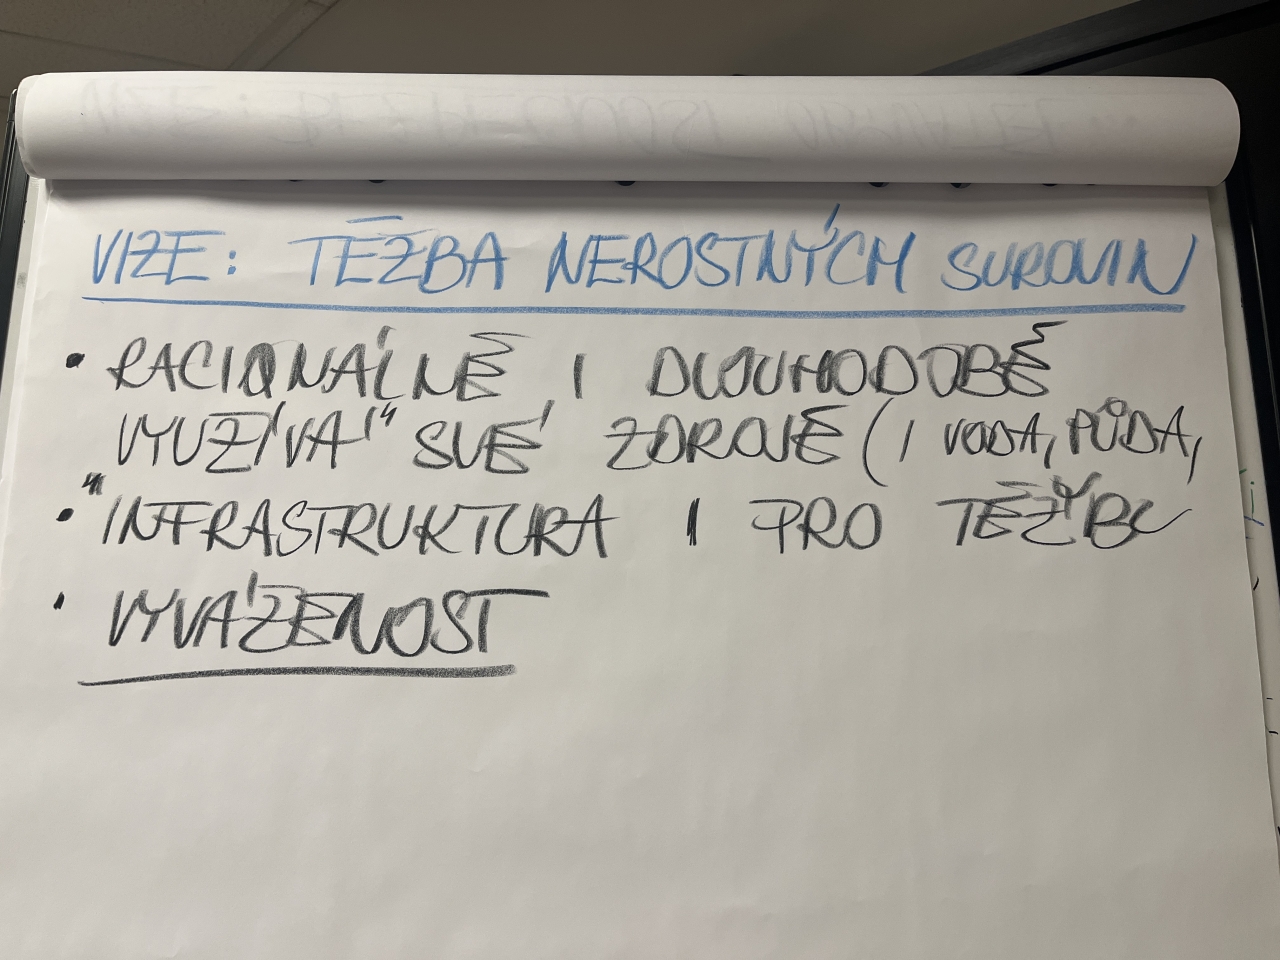 VIZE: TĚŽBA NEROSTNÝCH SUROVIN
• RACIONÁLNĚ I DLOUHODOBĚ
VYUŽÍVÁ" SVÉ ZDROJE (I VODA, PŮDA,
• "INFRASTRUKTURA I PRO TĚŽBU
• VYVÁŽENOST